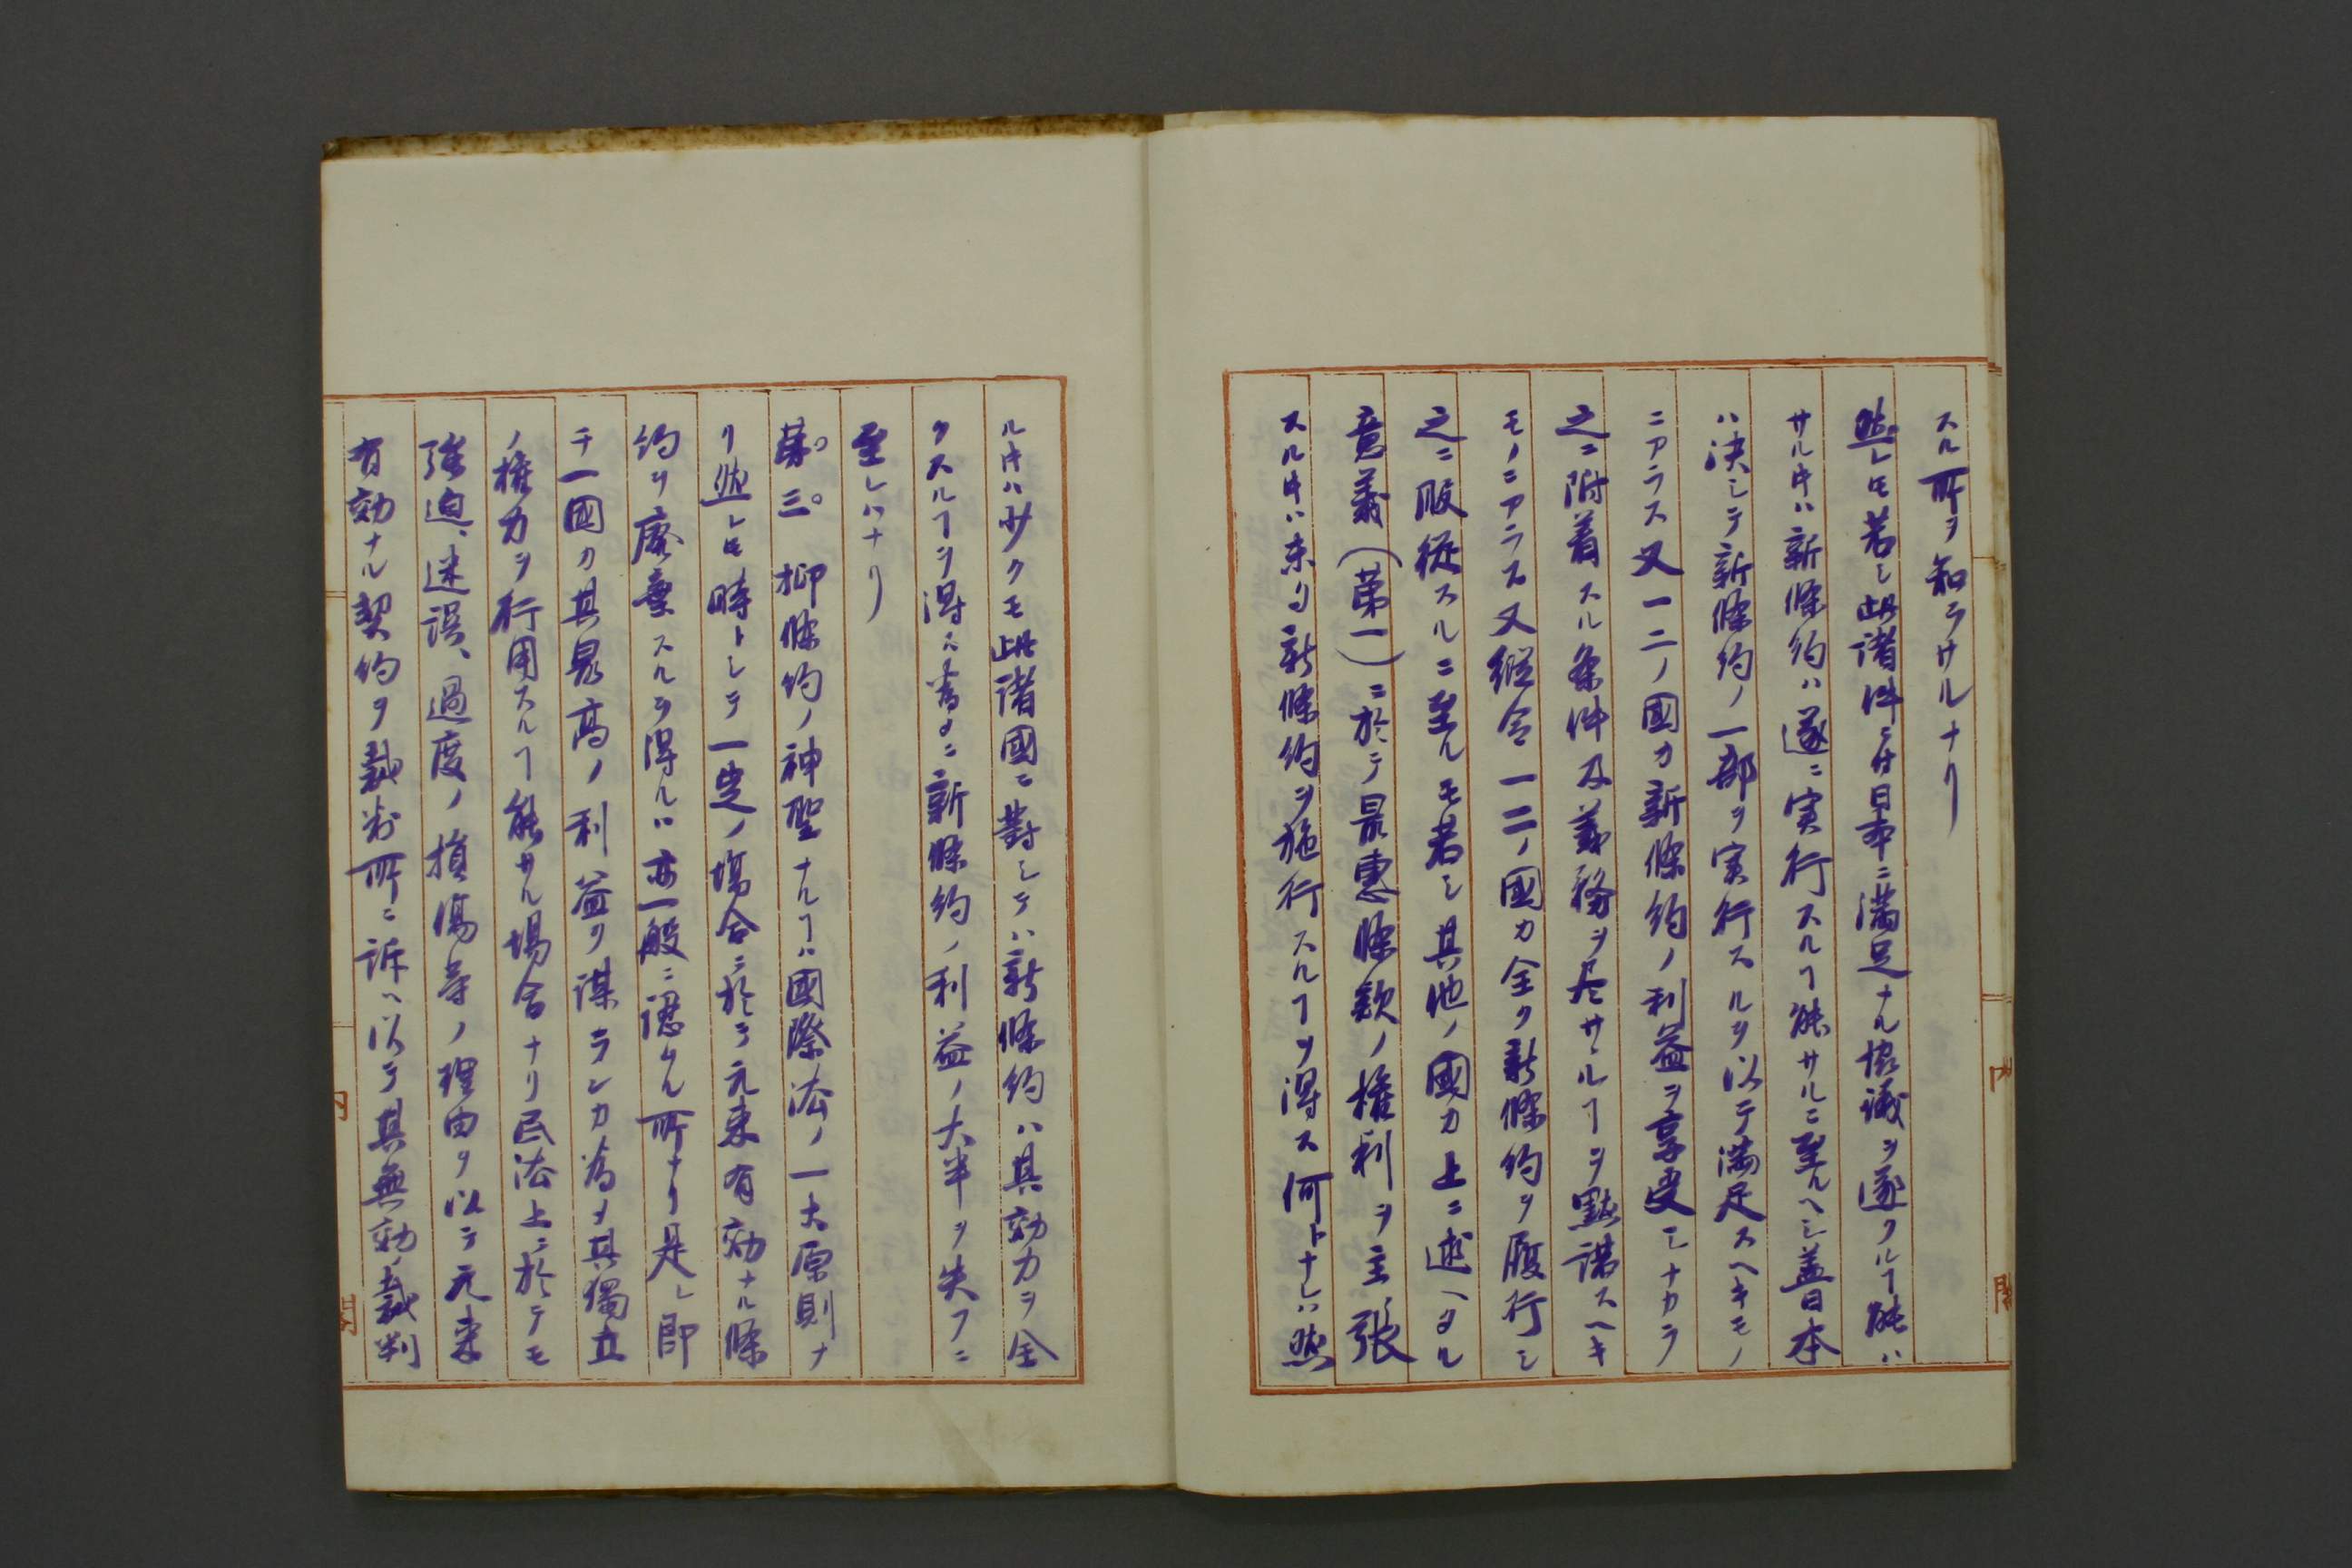 スル所ヲ知ラサルナリ
然レ𪜈若シ此諸件ニ付日本ニ満足ナル協議ヲ遂クルヿ能ハ
サル時ハ新條約ハ遂ニ実行スルヿ能サルニ至ルヘシ蓋日本
ハ決シテ新條約ノ一部ヲ実行スルヲ以テ満足スヘキモノ
ニアラス又一二ノ國カ新條約ノ利益ヲ享受シナカラ
之ニ附着スル条件及義務ヲ尽サルヿヲ黙諾スヘキ
モノニアラス又縦令一二ノ國カ全ク新條約ヲ履行シ
之ニ服従スルニ至ルモ若シ其他ノ國カ上ニ述ヘタル
意義(第一)ニ於テ最惠條款ノ権利ヲ主張
スル時ハ未タ新條約ヲ施行スルヿヲ得ス何トナレハ然
ル時ハ少クモ此諸國ニ對シテハ新條約ハ其効力ヲ全
クスルヿヲ得ス為メニ新條約ノ利益ノ大半ヲ失フニ
至レハナリ
第三 抑條約ノ神聖ナルヿハ國際法ノ一大原則ナ
リ然レ𪜈時トシテ一定ノ場合ニ於テ元来有効ナル條
約ヲ廃棄スルヲ得ルハ亦一般ニ認ムル所ナリ是レ即
チ一國カ其最高ノ利益ヲ謀ランカ為メ其獨立
ノ権力ヲ行用スルヿ能サル場合ナリ民法上ニ於テモ
強迫、迷誤、過度ノ損傷等ノ理由ヲ以テ元来
有効ナル契約ヲ裁判所ニ訴ヘ以テ其無効ノ裁判
内
閣
内
閣